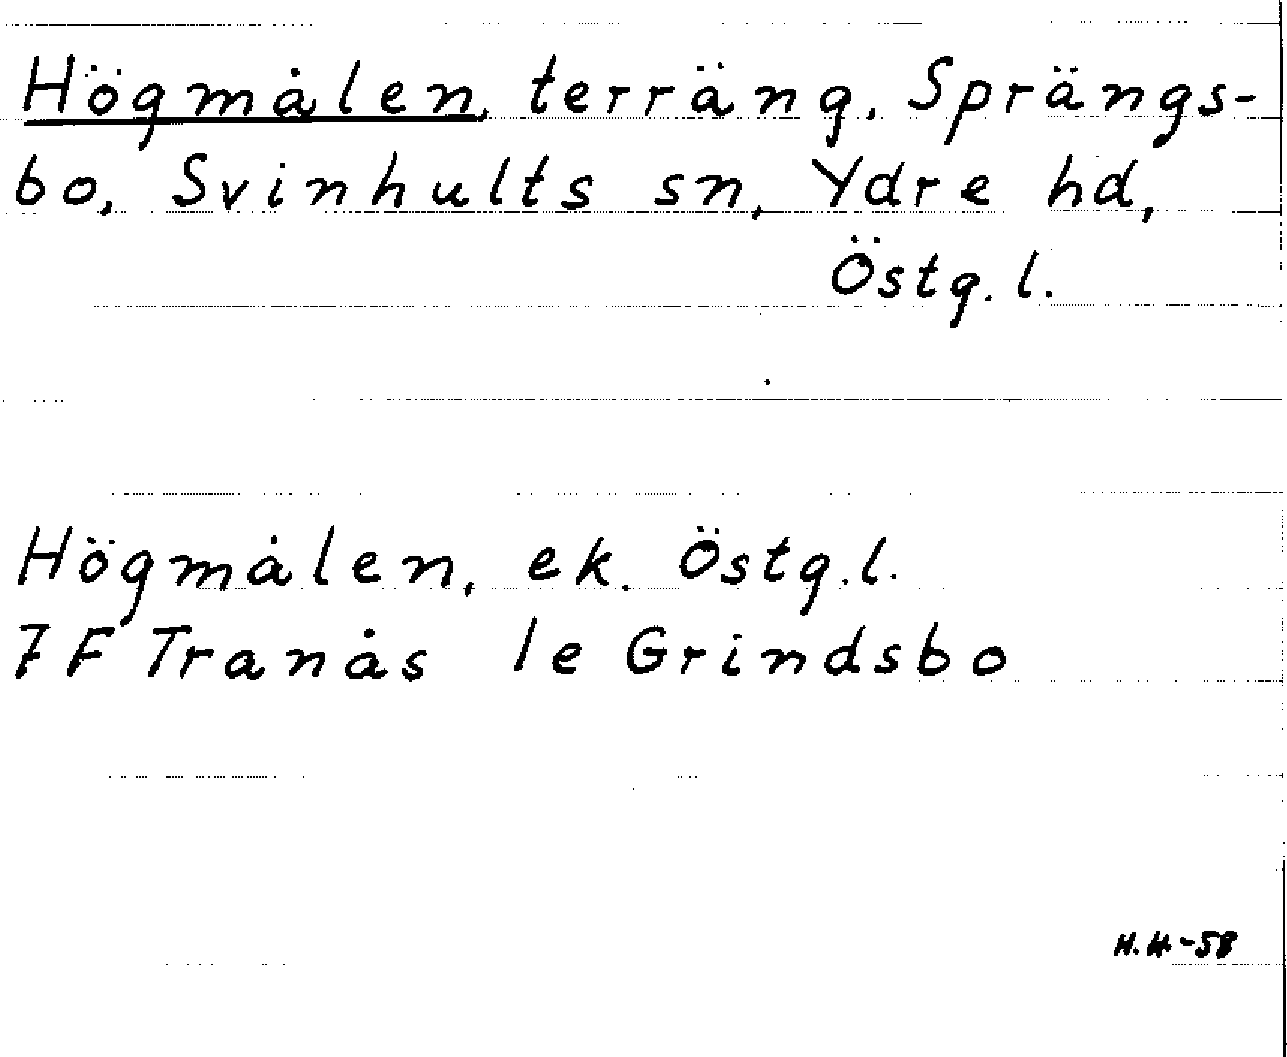 Högmålen, terräng, Sprängs-
bo, Svinhults sn, Ydre hd,
Östg. l.
Högmålen, ek. Östg. l.
7 F Tranås 1e Grindsbo
H.H.-58